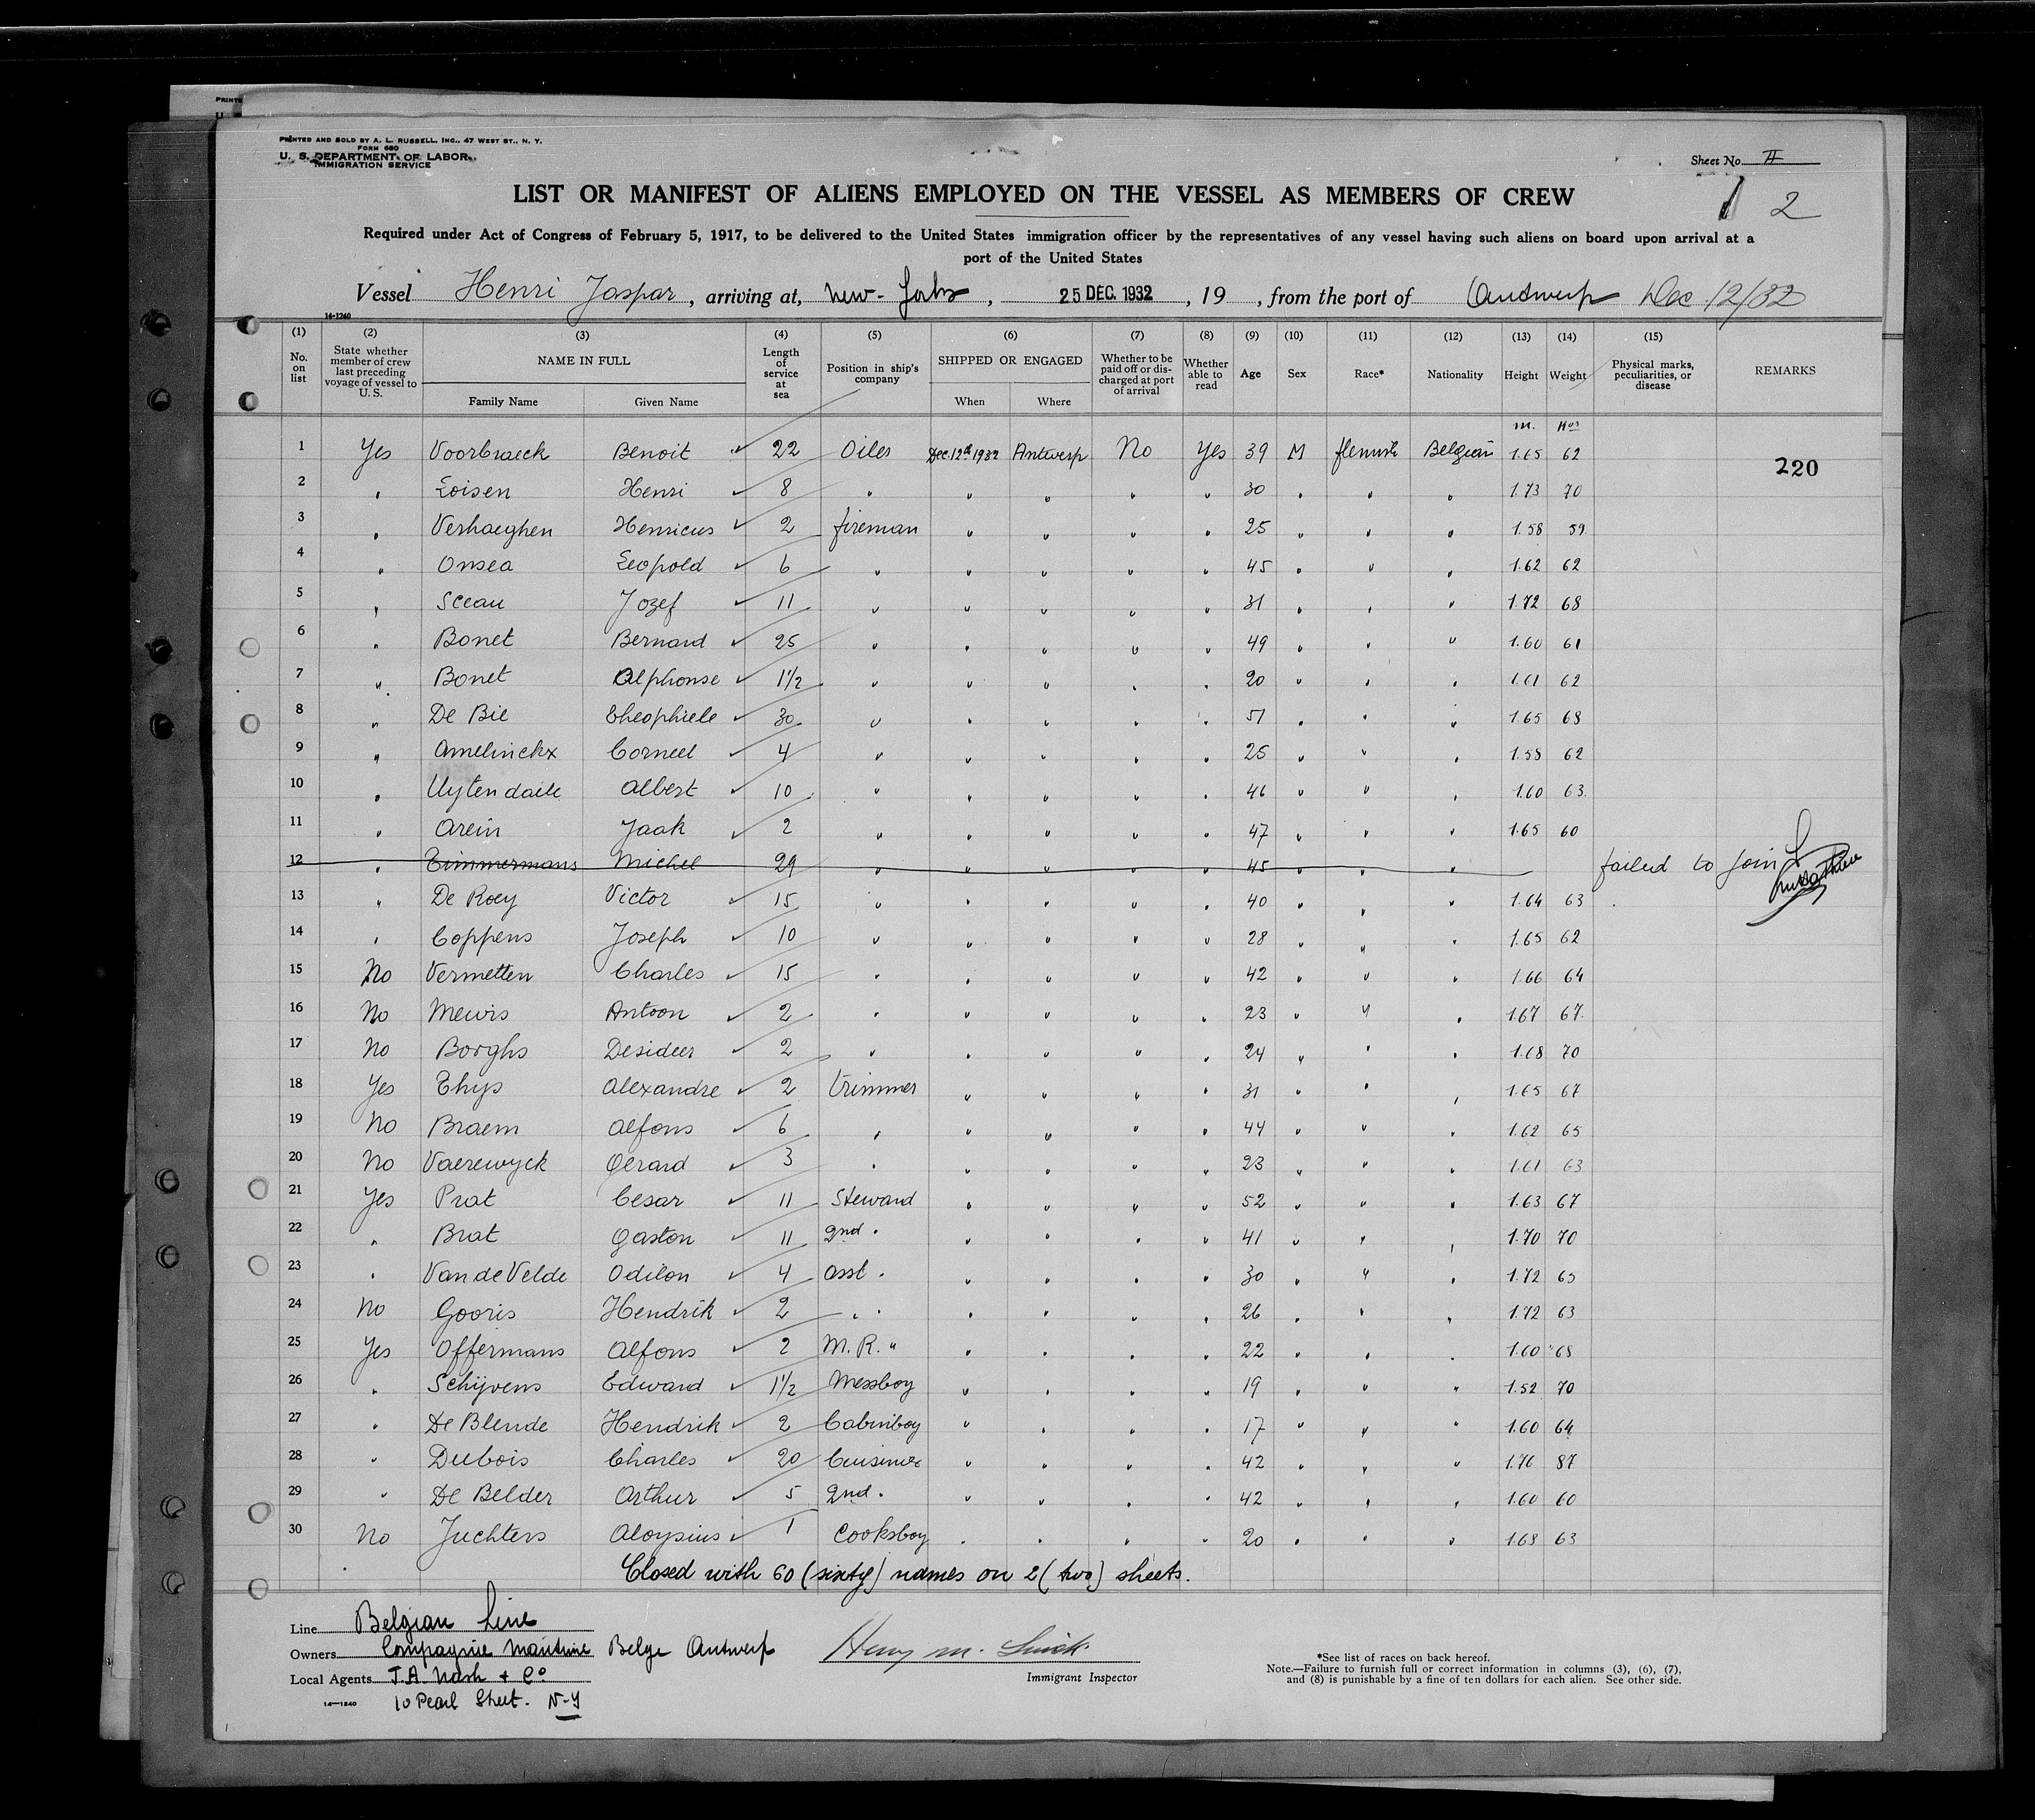 PRINTE
U
PRINTED AND SOLD BY A. L. RUSSELL, INC., 47 WEST ST., N. Y.
FORM 680
U. S. DEPARTMENT OF LABOR
IMMIGRATION SERVICE
Sheet No. II
2
LIST OR MANIFEST OF ALIENS EMPLOYED ON THE VESSEL AS MEMBERS OF CREW
Required under Act of Congress of February 5, 1917, to be delivered to the United States immigration officer by the representatives of any vessel having such aliens on board upon arrival at a
port of the United States
Vessel Henri Jaspar, arriving at, New-York, 25 DEC. 1932, 19 , from the port of Antwerp Dec 12/32
14-1240
(1) (2) (3) (4) (5) (6) (7) (8) (9) (10) (11) (12) (13) (14) (15)
No. on list State whether member of crew last preceding voyage of vessel to U. S. NAME IN FULL Length of service at sea Position in ship's company SHIPPED OR ENGAGED Whether to be paid off or discharged at port of arrival Whether able to read Age Sex Race* Nationality Height Weight Physical marks, peculiarities, or disease REMARKS
Family Name Given Name When Where
m. Kos
1 Yes Voorbraeck Benoit ✓ 22 Oiler Dec. 12th 1932 Antwerp No Yes 39 M flemish Belgian 1.65 62
220
2 " Loisen Henri ✓ 8 " " " " " 30 " " " 1.73 70
3 " Verhaeghen Henricus ✓ 2 fireman " " " " 25 " " " 1.58 59
4 " Onsea Leopold ✓ 6 " " " " " 45 " " " 1.62 62
5 " Sceau Jozef ✓ 11 " " " " " 31 " " " 1.72 68
6 " Bonet Bernard ✓ 25 " " " " " 49 " " " 1.60 61
7 " Bonet Alphonse ✓ 1½ " " " " " 20 " " " 1.61 62
8 " De Bie Theophiele ✓ 30 " " " " " 51 " " " 1.65 68
9 " Amelinckx Corneel ✓ 4 " " " " " 25 " " " 1.58 62
10 " Uytendaele Albert ✓ 10 " " " " " 46 " " " 1.60 63
11 " Arein Jaak ✓ 2 " " " " " 47 " " " 1.65 60
12 " Timmermans Michel 29 " " " " " 45 " " " failed to join
13 " De Roey Victor ✓ 15 " " " " " 40 " " " 1.64 63
14 " Coppens Joseph ✓ 10 " " " " " 28 " " " 1.65 62
15 No Vermetten Charles ✓ 15 " " " " " 42 " " " 1.66 64
16 No Mewis Antoon ✓ 2 " " " " " 23 " " " 1.67 67
17 No Borghs Desideer ✓ 2 " " " " " 24 " " " 1.68 70
18 Yes Thys Alexandre ✓ 2 trimmer " " " " 31 " " " 1.65 67
19 No Braem Alfons ✓ 6 " " " " " 44 " " " 1.62 65
20 No Vaerewyck Gerard ✓ 3 " " " " " 23 " " " 1.61 63
21 Yes Prat Cesar ✓ 11 Steward " " " " 52 " " " 1.63 67
22 " Brat Gaston ✓ 11 2nd " " " " " 41 " " " 1.70 70
23 " Van de Velde Odilon ✓ 4 asst. " " " " 30 " " " 1.72 65
24 No Gooris Hendrik ✓ 2 " " " " " " 26 " " " 1.72 63
25 Yes Offermans Alfons ✓ 2 M. R. " " " " " 22 " " " 1.60 68
26 " Schijvens Edward ✓ 1½ Messboy " " " " 19 " " " 1.52 70
27 " De Blende Hendrik ✓ 2 Cabinboy " " " " 17 " " " 1.60 64
28 " Dubois Charles ✓ 20 Cuisinier " " " " 42 " " " 1.76 87
29 " De Belder Arthur ✓ 5 2nd " " " " " 42 " " " 1.60 60
30 No Juchters Aloysius ✓ 1 Cooksboy " " " " 20 " " " 1.68 63
Closed with 60 (sixty) names on 2 (two) sheets.
Line Belgian Line
Owners Compagnie Maritime Belge Antwerp
Local Agents J.A. Nash & Co
10 Pearl Street. N-Y
14-1240
Henry M.
Immigrant Inspector
*See list of races on back hereof.
Note.—Failure to furnish full or correct information in columns (3), (6), (7),
and (8) is punishable by a fine of ten dollars for each alien. See other side.